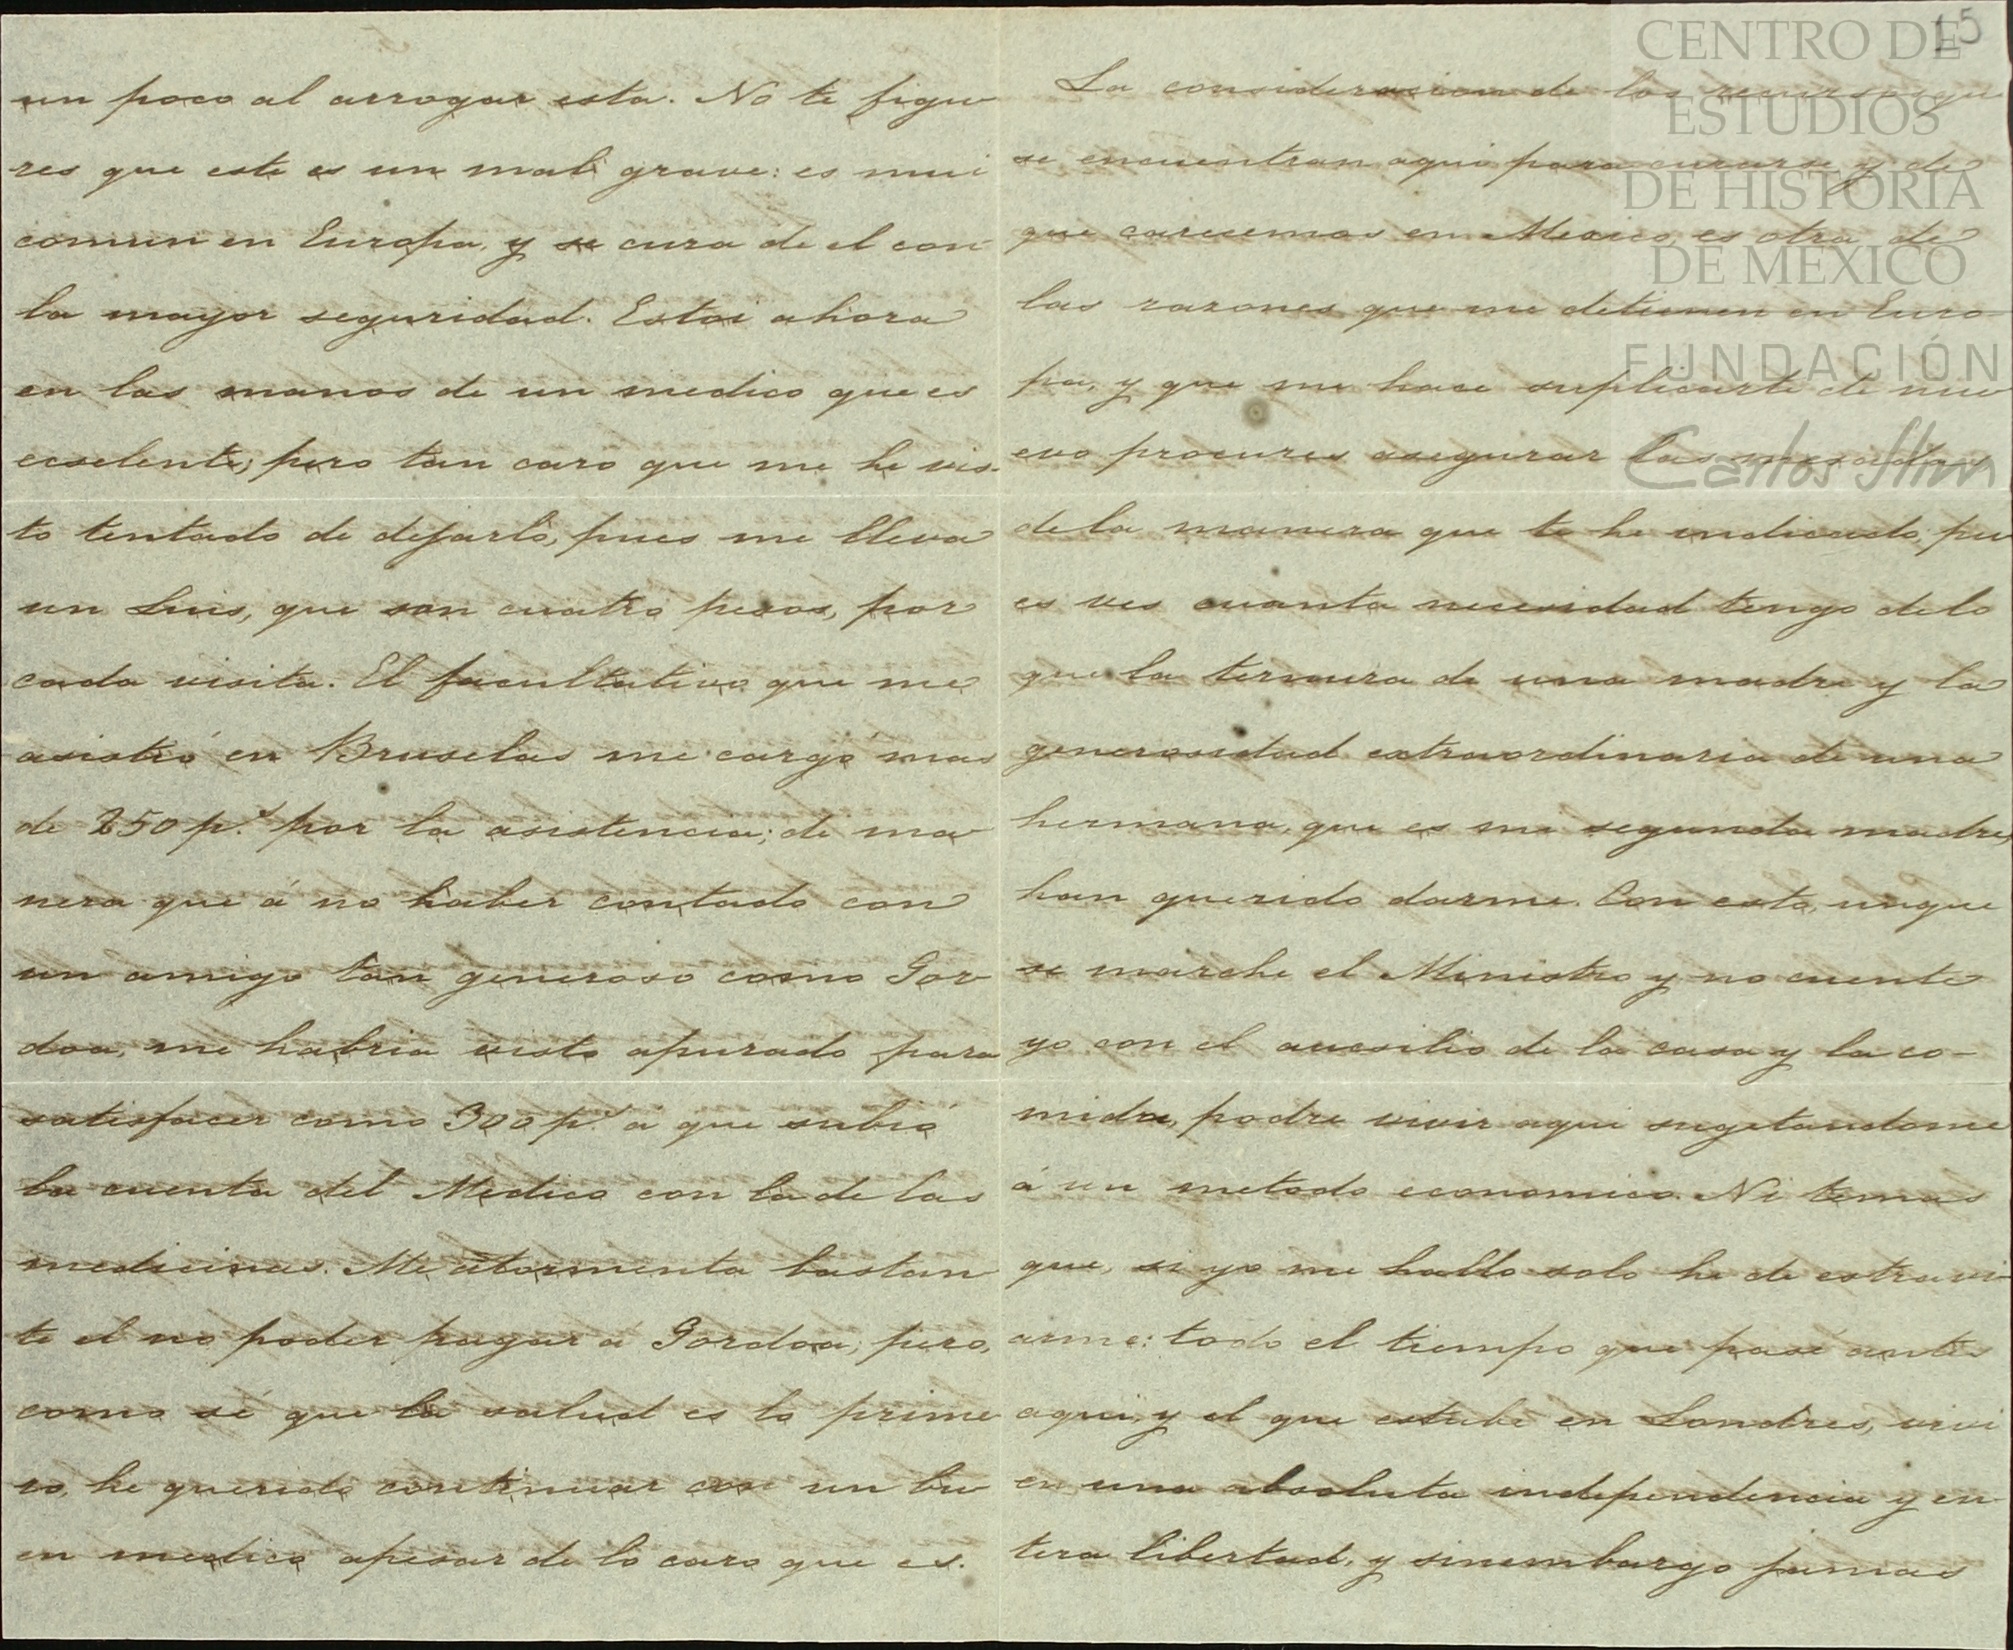 un poco al arrogar esta. No te figu
res que este es un mal grave: es mui
comun en Europa, y se cura de el con
la mayor seguridad. Estoi ahora
en las manos de un medico que es
ecselente; pero tan caro que me he vis-
to tentado de dejarlo, pues me lleva
un Luis, que son cuatro pesos, por
cada visita. El facultativo que me
asistió en Bruselas me cargó mas
de 250 p.s por la asistencia; de ma
nera que á no haber contado con
un amigo tan generoso como Gor
doa, me habria visto apurado para
satisfacer como 300 p.s á que subió
la cuenta del Medico con la de las
medicinas. Me atormenta bastan
te el no poder pagar á Gordoa; pero,
como sé que la salud es lo prime
ro, he querido continuar con un bu
en medico apesar de lo caro que es.
15
La consideracion de los recursos que
se encuentran aqui para curarse y de
que carecemos en Mexico, es otra de
las razones que me detienen en Euro-
pa, y que me hace suplicarte de nue
evo procures asegurar las mesadas
de la manera que te he indicado, pu
es ves cuanta necesidad tengo de lo
que la ternura de una madre y la
generosidad extraordinaria de una
hermana, que es mi segunda madre,
han querido darme. Con esto, unque
se marche el Ministro y no cuente
yo con el aucsilio de la casa y la co-
mida, podre vivir aqui sugetandome
á un metodo economico. Ni temas
que, si yo me hallo solo he de estravi-
arme: todo el tiempo que pasé antes
aqui, y el que estube en Londres, vivi
en una absoluta independencia y en-
tera libertad, y sinembargo jamas
CENTRO DE
ESTUDIOS
DE HISTORIA
DE MEXICO
FUNDACIÓN
Carlos Slim